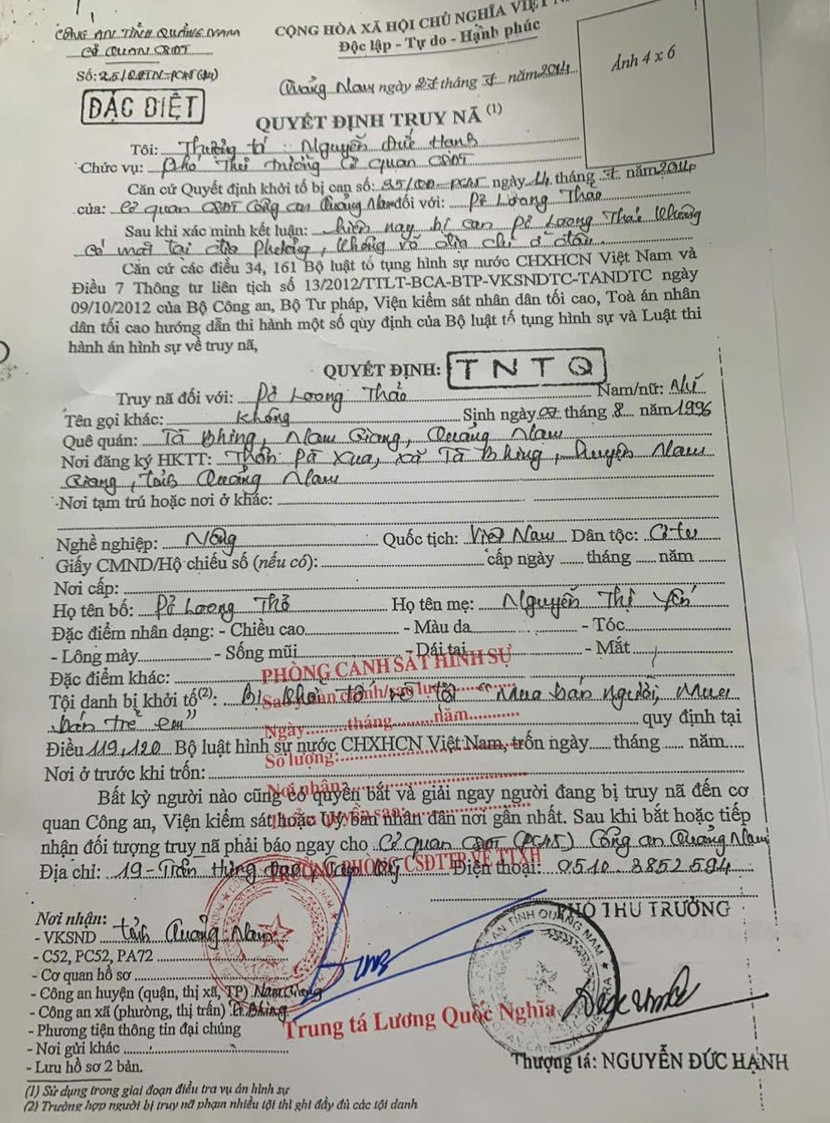 CÔNG AN TỈNH QUẢNG NAM
CƠ QUAN CSĐT
Số: 25/
ĐẶC BIỆT
CỘNG HÒA XÃ HỘI CHỦ NGHĨA VIỆT
Độc lập - Tự do - Hạnh phúc
Quảng Nam ngày tháng năm 2014
Ảnh 4 x 6
QUYẾT ĐỊNH TRUY NÃ (1)
Tôi: Thượng tá: Nguyễn Đức Hạnh
Chức vụ: Phó Thủ trưởng Cơ quan CSĐT
Căn cứ Quyết định khởi tố bị can số: ngày 14 tháng năm 2014
của: Cơ quan CSĐT Công an Quảng Nam đối với: Pơ Loong Thảo
Sau khi xác minh kết luận: hiện nay bị can Pơ Loong Thảo không
có mặt tại địa phương, không rõ địa chỉ ở đâu.
Căn cứ các điều 34, 161 Bộ luật tố tụng hình sự nước CHXHCN Việt Nam và
Điều 7 Thông tư liên tịch số 13/2012/TTLT-BCA-BTP-VKSNDTC-TANDTC ngày
09/10/2012 của Bộ Công an, Bộ Tư pháp, Viện kiểm sát nhân dân tối cao, Toà án nhân
dân tối cao hướng dẫn thi hành một số quy định của Bộ luật tố tụng hình sự và Luật thi
hành án hình sự về truy nã,
QUYẾT ĐỊNH: TNTQ
Truy nã đối với: Pơ Loong Thảo Nam/nữ: Nữ
Tên gọi khác: Không Sinh ngày tháng 8 năm 1996
Quê quán: Tà Bhing, Nam Giang, Quảng Nam
Nơi đăng ký HKTT: Thôn Pà Xua, xã Tà Bhing, huyện Nam
Giang, tỉnh Quảng Nam
Nơi tạm trú hoặc nơi ở khác:
Nghề nghiệp: Nông Quốc tịch: Việt Nam Dân tộc: Cơtu
Giấy CMND/Hộ chiếu số (nếu có): cấp ngày tháng năm
Nơi cấp:
Họ tên bố: Pơ Loong Thỏ Họ tên mẹ: Nguyễn Thị Yến
Đặc điểm nhân dạng: - Chiều cao - Màu da - Tóc
- Lông mày - Sống mũi - Dái tai - Mắt
PHÒNG CẢNH SÁT HÌNH SỰ
Đặc điểm khác:
Tội danh bị khởi tố(2): Bị khởi tố về tội "Mua bán người, mua
bán trẻ em" quy định tại
Ngày tháng năm
Điều 119, 120 Bộ luật hình sự nước CHXHCN Việt Nam, trốn ngày tháng năm
Số lượng:
Nơi ở trước khi trốn:
Nơi nhận:
Bất kỳ người nào cũng có quyền bắt và giải ngay người đang bị truy nã đến cơ
quan Công an, Viện kiểm sát hoặc Uỷ ban nhân dân nơi gần nhất. Sau khi bắt hoặc tiếp
nhận đối tượng truy nã phải báo ngay cho Cơ quan CSĐT (PC45) Công an Quảng Nam
Địa chỉ: 19 - Trần Hưng Đạo, Điện thoại: 0510.3852594
TRƯỞNG PHÒNG CSĐTTP VỀ TTXH
PHÓ THỦ TRƯỞNG
Nơi nhận:
- VKSND tỉnh Quảng Nam
- C52, PC52, PA72
- Cơ quan hồ sơ
- Công an huyện (quận, thị xã, TP) Nam Giang
- Công an xã (phường, thị trấn) Tà Bhing
- Phương tiện thông tin đại chúng
- Nơi gửi khác
- Lưu hồ sơ 2 bản.
Trung tá Lương Quốc Nghĩa
Thượng tá: NGUYỄN ĐỨC HẠNH
(1) Sử dụng trong giai đoạn điều tra vụ án hình sự
(2) Trường hợp người bị truy nã phạm nhiều tội thì ghi đầy đủ các tội danh